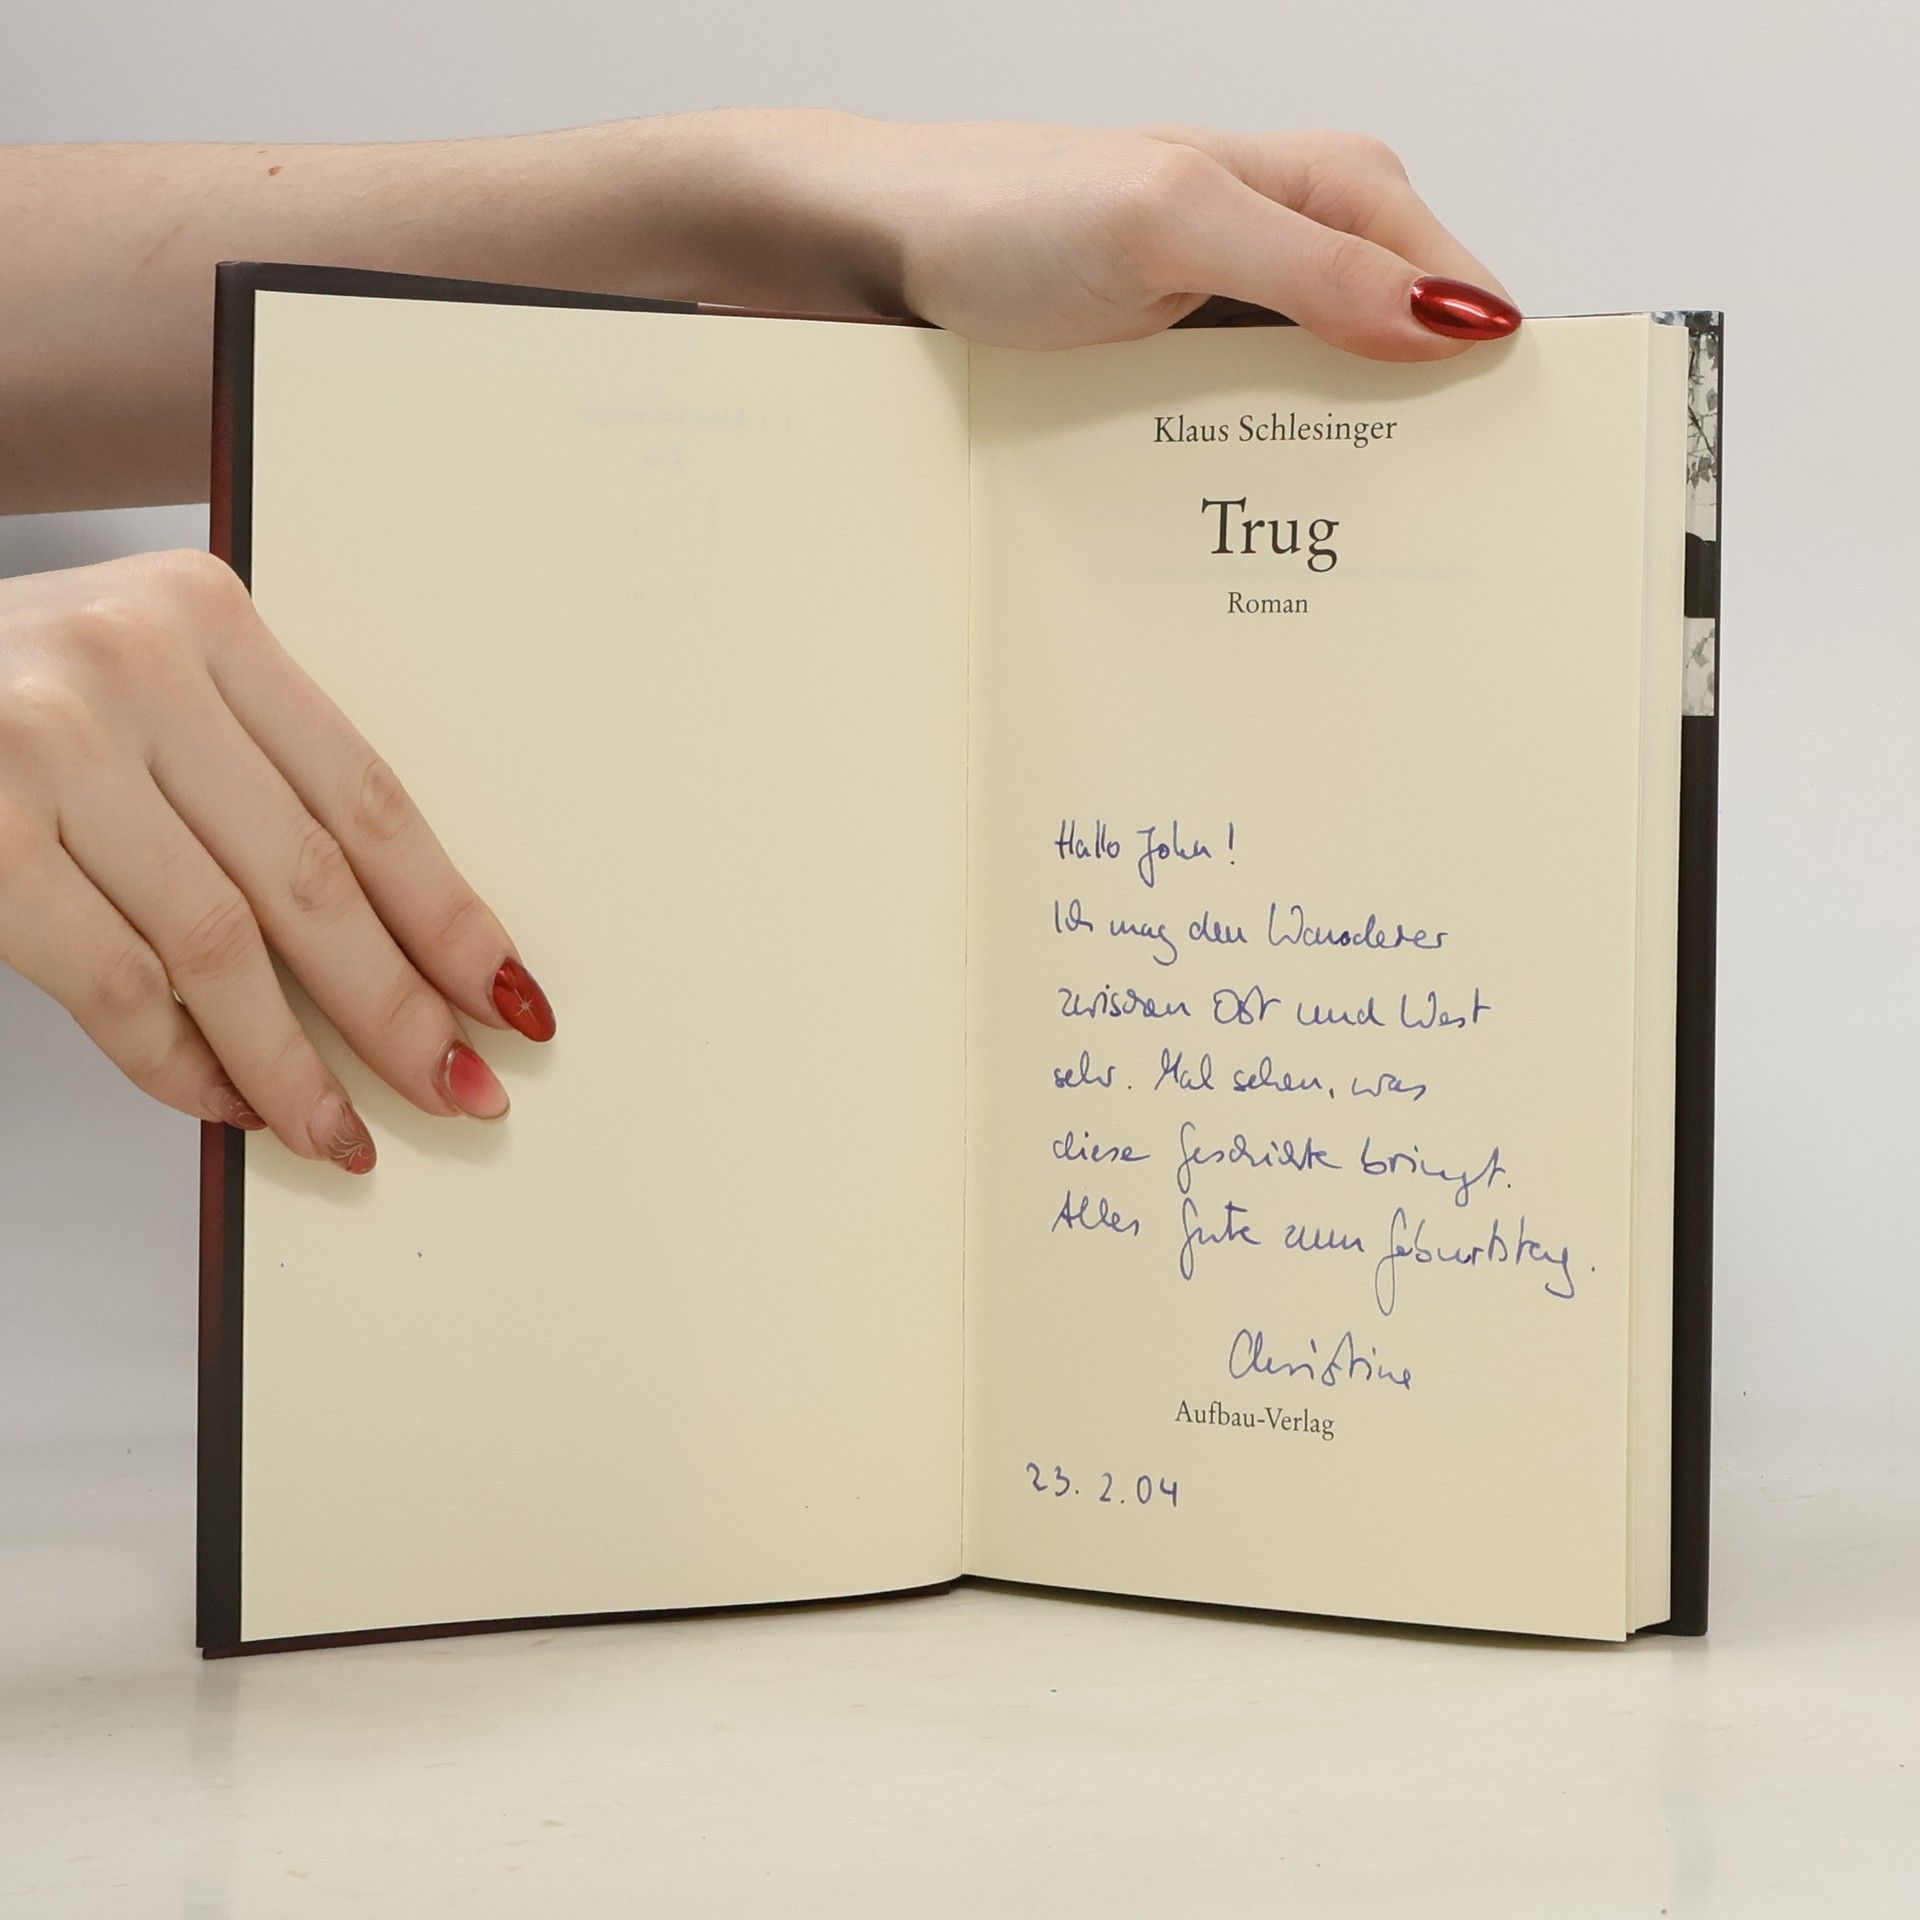 Klaus Schlesinger
Trug
Roman
Hallo John!
Ich mag den Wanderer
zwischen Ost und West
sehr. Mal sehen, was
diese Geschichte bringt.
Alles Gute zum Geburtstag.
Christine
Aufbau-Verlag
23. 2. 04